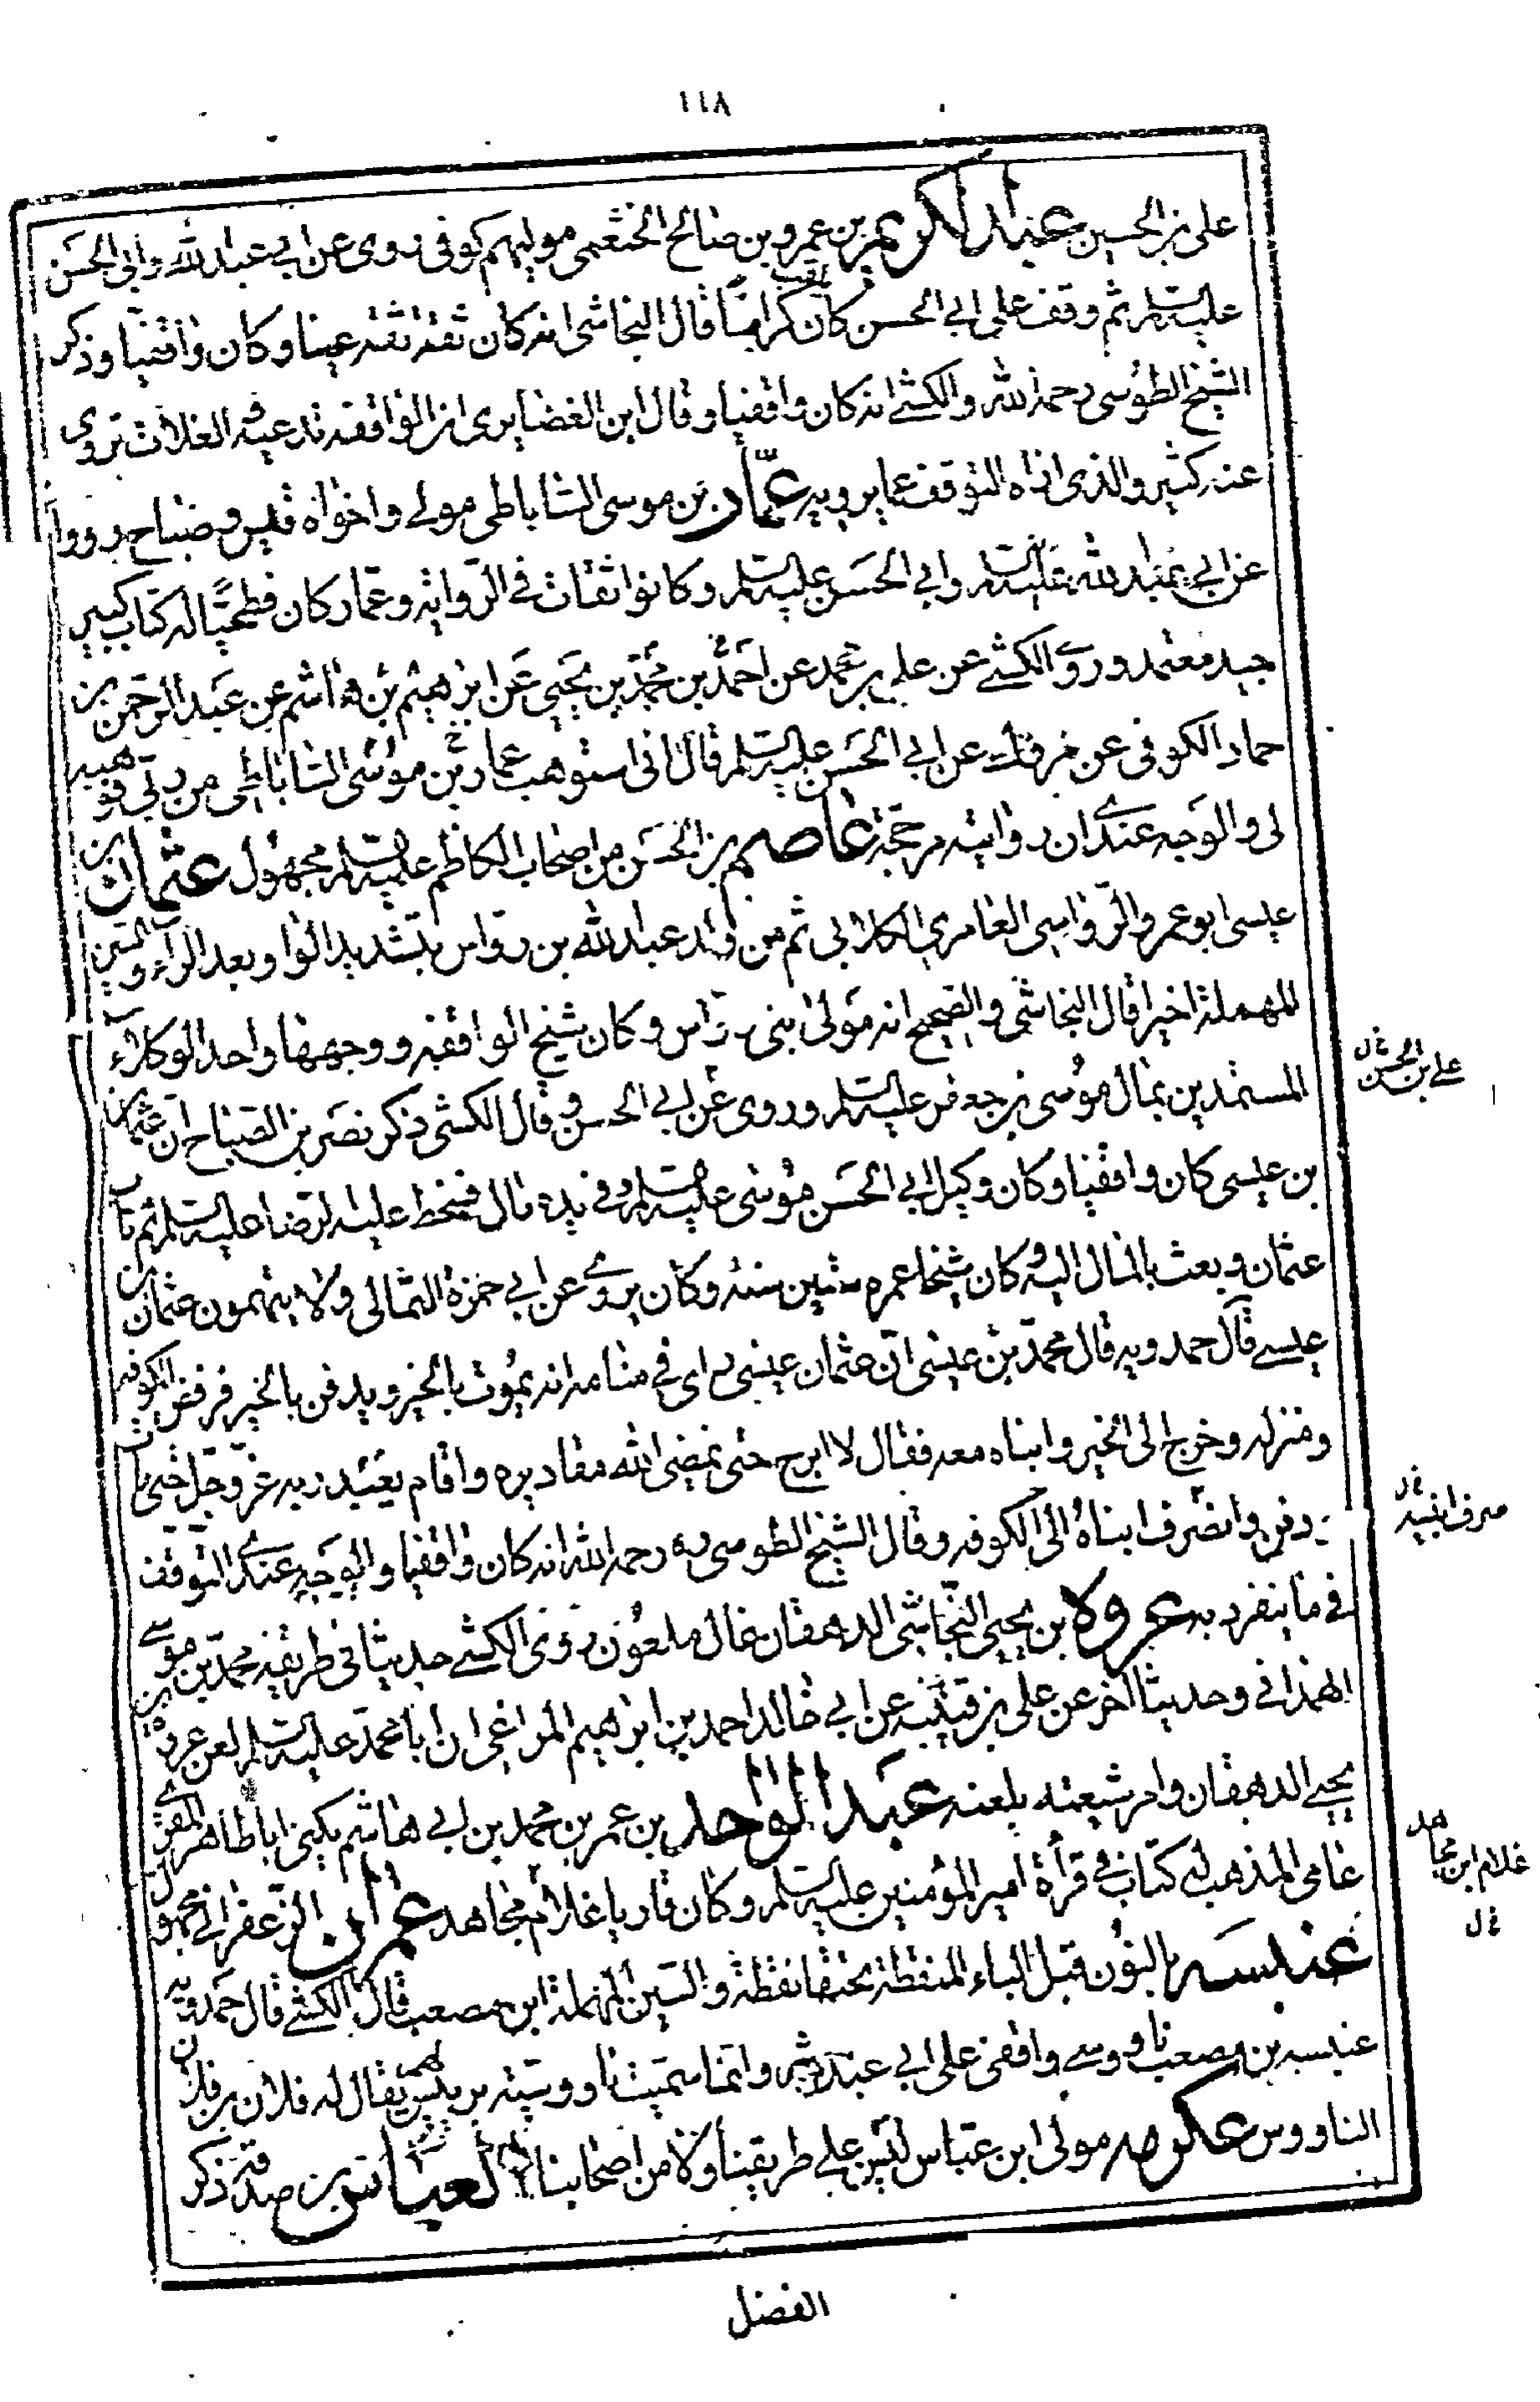 ١١٨
علي بن الحسين عبد الكريم بن عمرو بن صالح الخثعمي مولاهم كوفي روى عن ابي عبد الله وابي الحسن
عليه السلم ثم وقف على ابي الحسن كان يلقب كراما قال النجاشي انه كان ثقة ثقة عينا وكان واقفيا وذكر
الشيخ الطوسي رحمه الله والكشي انه كان واقفيا وقال ابن الغضايري ان الواقفة تدعيه والغلات تروى
عنه كثيرو الذي اراه التوقف عما يرويه عمّار بن موسى الساباطي مولى واخواه قيس وصباح رووا
عن ابي عبد الله عليه السلم وابي الحسن عليه السلم وكانوا ثقات في الرواية وعمار كان فطحيًّا له كتاب كبير
جيد معتمد وروى الكشي عن علي بن محمد عن احمد بن محمد بن يحيى عن ابرهيم بن هاشم عن عبد الرحمن بن
حماد الكوفي عن مروك عن ابي الحسن عليه السلم قال اني استوهبت عمار بن موسى الساباطي من ربي فوهبه
لي والوجه عندي ان روايته مرجحة عاصم بن الحسن من اصحاب الكاظم عليه السلم مجهول عثمان بن
عيسى ابو عمرو الرواسي العامري الكلابي ثم من ولد عبد الله بن رواس بتشديد الواو بعد الراء والسين
المهملة اخيرا قال النجاشي والصحيح انه مولى بني رواس وكان شيخ الواقفة ووجهها واحد الوكلاء
المستبدين بمال موسى بن جعفر عليه السلم وروى عن ابي الحسن و قال الكشي ذكر نصر بن الصباح ان عثمان
علي بن الحسن خ ل
بن عيسى كان واقفيا وكان وكيل ابي الحسن موسى عليه السلم وفي يده مال فسخط عليه الرضا عليه السلم ثم تاب
عثمان وبعث بالمال اليه وكان شيخا عمره ستين سنة وكان يروى عن ابي حمزة الثمالي ولا يتهمون عثمان بن
عيسى قال حمدويه قال محمد بن عيسى ان عثمان عيسى راى في منامه انه يموت بالحير ويدفن بالحير فرفض الكوفه
ومنزله وخرج الى الحير وابناه معه فقال لا ابرح حتى يمضي الله مقاديره واقام يعبد ربه عز وجل حتى مات
ودفن وانصرف ابناه الى الكوفة وقال الشيخ الطوسي ره رحمه الله انه كان واقفيا والوجه عندي التوقف
صرف ابنيه خ ل
في ما ينفرد به عروة بن يحيى النجاشي الدهقان غال ملعون روى الكشي حديثا في طريقه محمد بن موسى
الهمداني وحديثا اخر عن علي بن قتيبة عن ابي خالد احمد بن ابرهيم المراغي ان ابا محمد عليه السلم لعن عروة بن
يحيى الدهقان وامر شيعته بلعنه عبد الواحد بن عمر بن محمد بن ابي هاشم يكنى ابا طاهر المقرى
عامي المذهب له كتاب في قرأة امير المؤمنين عليه السلم وكان قاريا غلام مجاهد عمران الزعفراني مجهول
غلام ابن مجاهد خ ل
عنبسه بالنون قبل الباء المنقطة تحتها نقطة والسين المهملة ابن مصعب قال الكشي قال حمدويه
عنبسه بن مصعب ناووسي واقفي على ابي عبد الله وانما سميت ناووسية برئيس لهم يقال له فلان بن فلان
الناووس عكرمه مولى ابن عباس ليس على طريقتنا ولا من اصحابنا العباس بن صدقة ذكر
الفضل